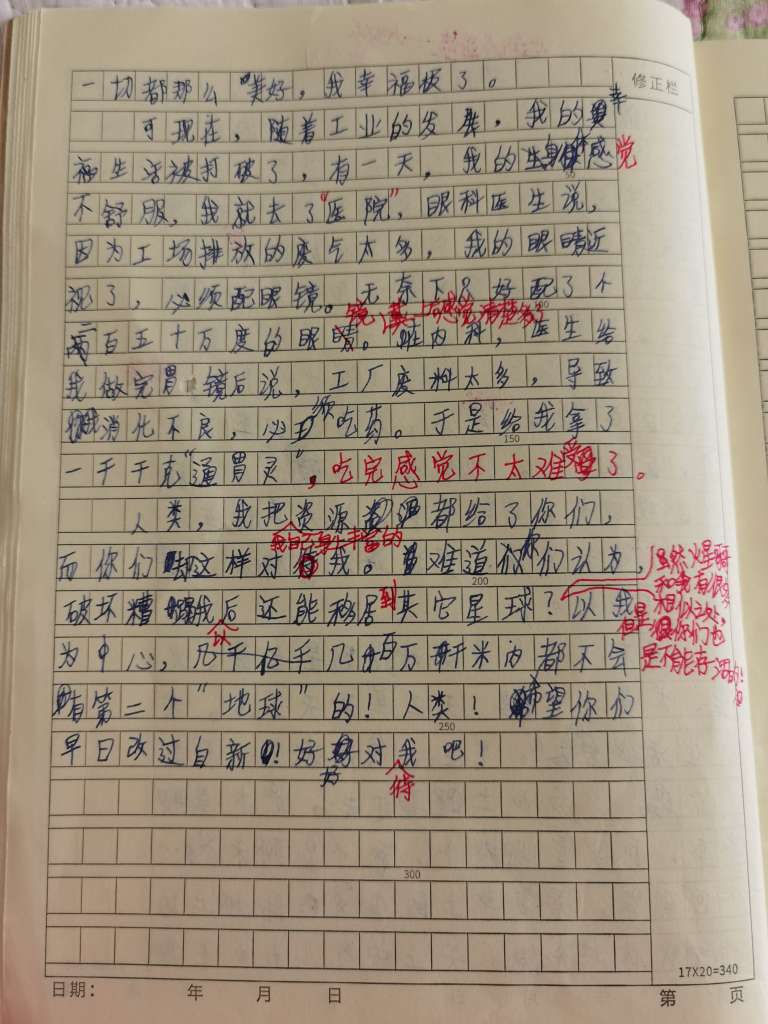 修正栏
一切都那么"美好，我幸福极了。
可现在，随着工业的发展，我的幸
福生活被打破了，有一天，我的身体感觉
不舒服，我就去了"医院"，眼科医生说，
因为工场排放的废气太多，我的眼睛近
视了，必须配眼镜。无奈下只好配了个
二百五十万度的眼镜。
感觉清楚多了
内科，医生给
我做完胃镜后说，工厂废料太多，导致
我消化不良，必须吃药。于是给我拿了
一千千克"通胃灵"，吃完感觉不太难受了。
人类，我把资源都给了你们，
我自身上丰富的
而你们却这样对我。难道你们认为，
破坏糟我后还能移居到其它星球？以我
虽然火星
和我有很多
相似之处，
但是你们也
是不能存活的！
为中心，几千亿千几百万千米内都不会
以
有第二个"地球"的！人类！希望你们
早日改过自新！好好对待我吧！
150
200
250
300
17X20=340
日期： 年 月 日
第 页